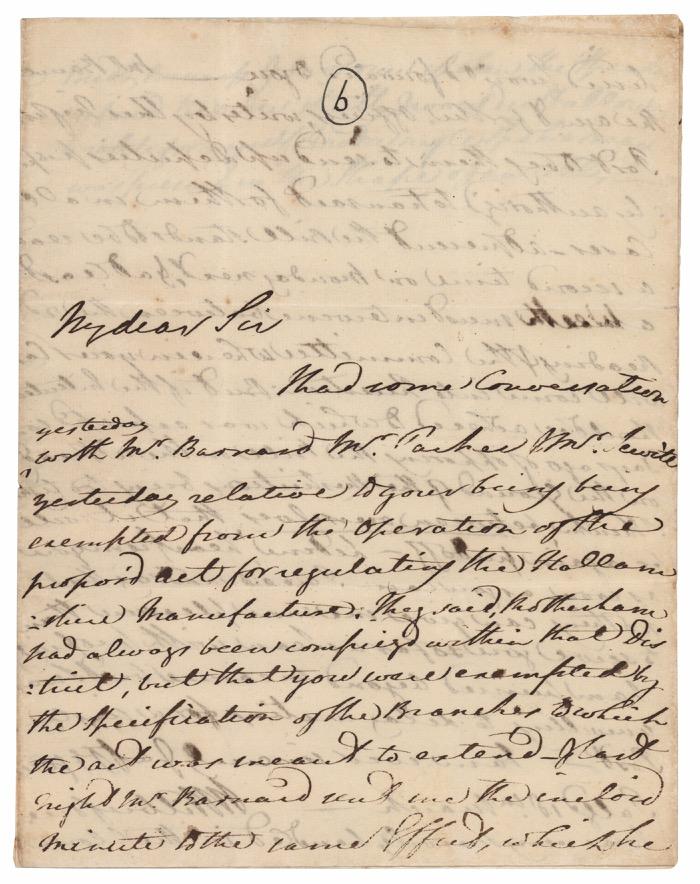 6
My dear Sir
I had some Conversation
yesterday
with Mr. Barnard Mr. Parker & Mr.
yesterday relative to your being being
exempted from the Operation of the
propos'd act for regulating the Hallam
:shire Manufacture. They said, Rotherham
had always been compriz'd within that Dis
:trict, but that you were exempted by
the specification of the Branches to which
the act was meant to extend – & last
night Mr. Barnard sent me the inclos'd
minute to the same Effect, which he